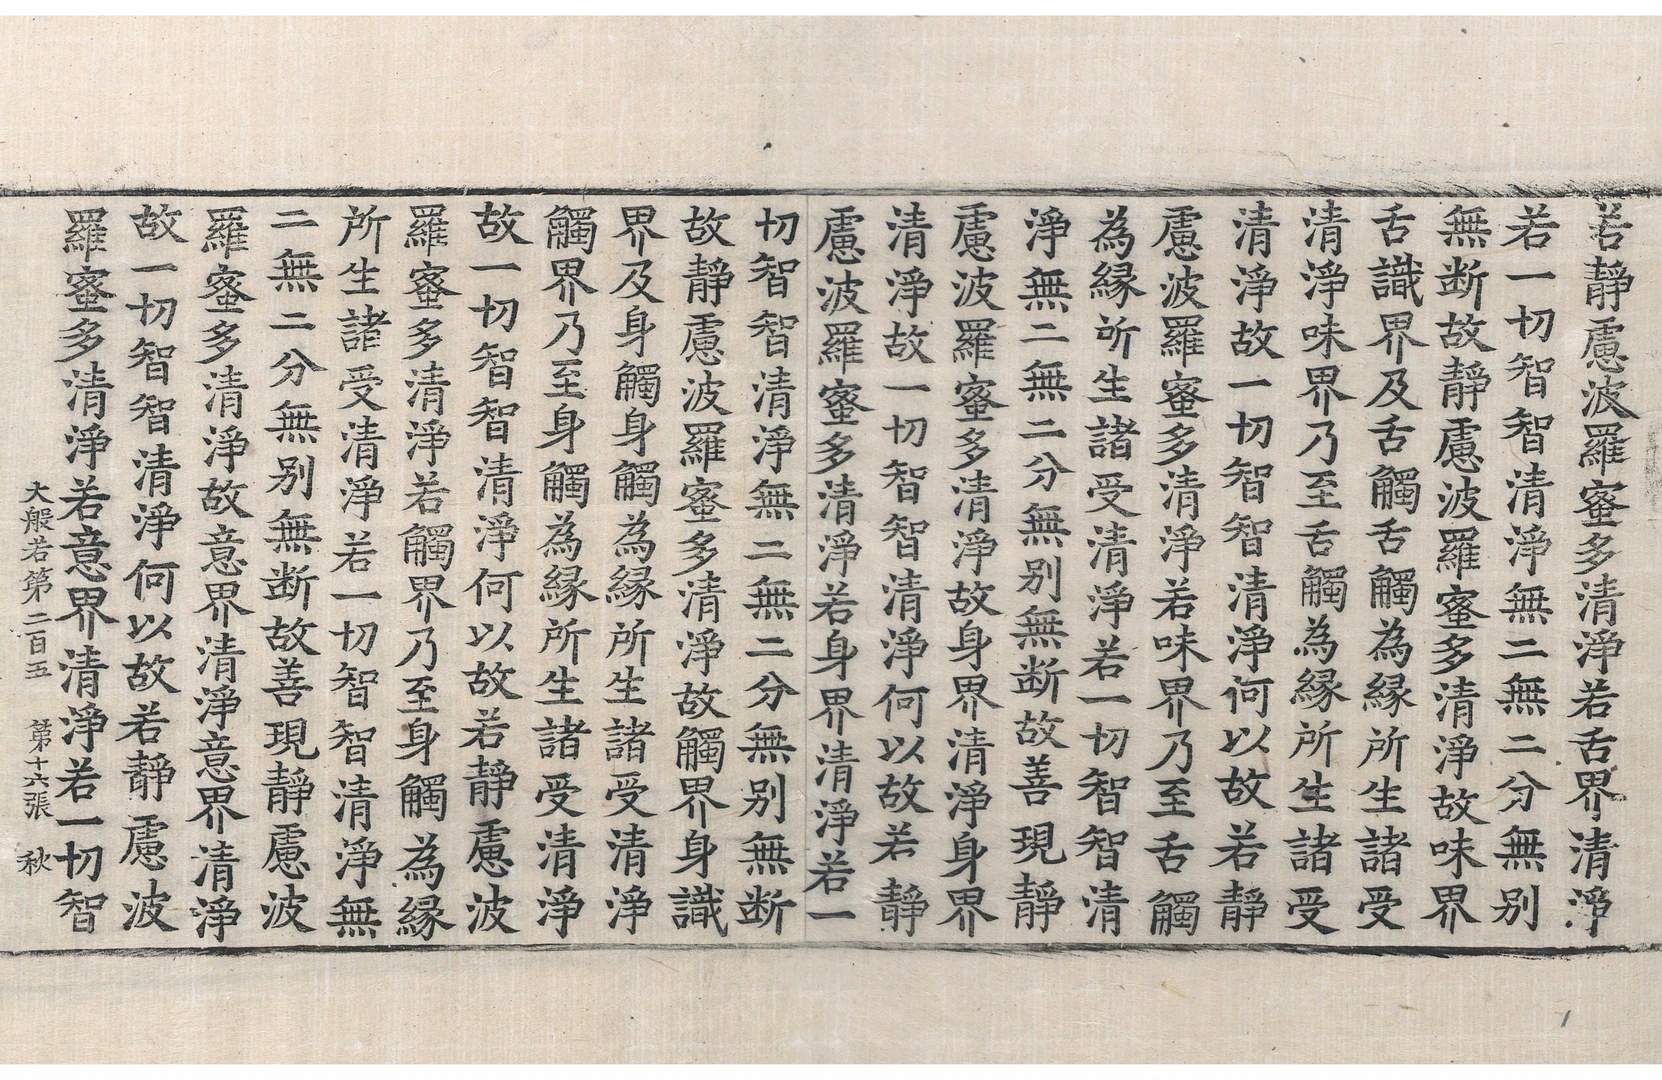 若靜慮波羅蜜多清淨若舌界清淨
若一切智智清淨無二無二分無别
無断故靜慮波羅蜜多清淨故味界
舌識界及舌觸舌觸為縁所生諸受
清淨味界乃至舌觸為縁所生諸受
清淨故一切智智清淨何以故若靜
慮波羅蜜多清淨若味界乃至舌觸
為縁所生諸受清淨若一切智智清
淨無二無二分無别無断故善現靜
慮波羅蜜多清淨故身界清淨身界
清淨故一切智智清淨何以故若靜
慮波羅蜜多清淨若身界清淨若一
切智智清淨無二無二分無别無断
故靜慮波羅蜜多清淨故觸界身識
界及身觸身觸為縁所生諸受清淨
觸界乃至身觸為縁所生諸受清淨
故一切智智清淨何以故若靜慮波
羅蜜多清淨若觸界乃至身觸為縁
所生諸受清淨若一切智智清淨無
二無二分無别無断故善現靜慮波
羅蜜多清淨故意界清淨意界清淨
故一切智智清淨何以故若靜慮波
羅蜜多清淨若意界清淨若一切智
大般若第二百五 第十六張 秋